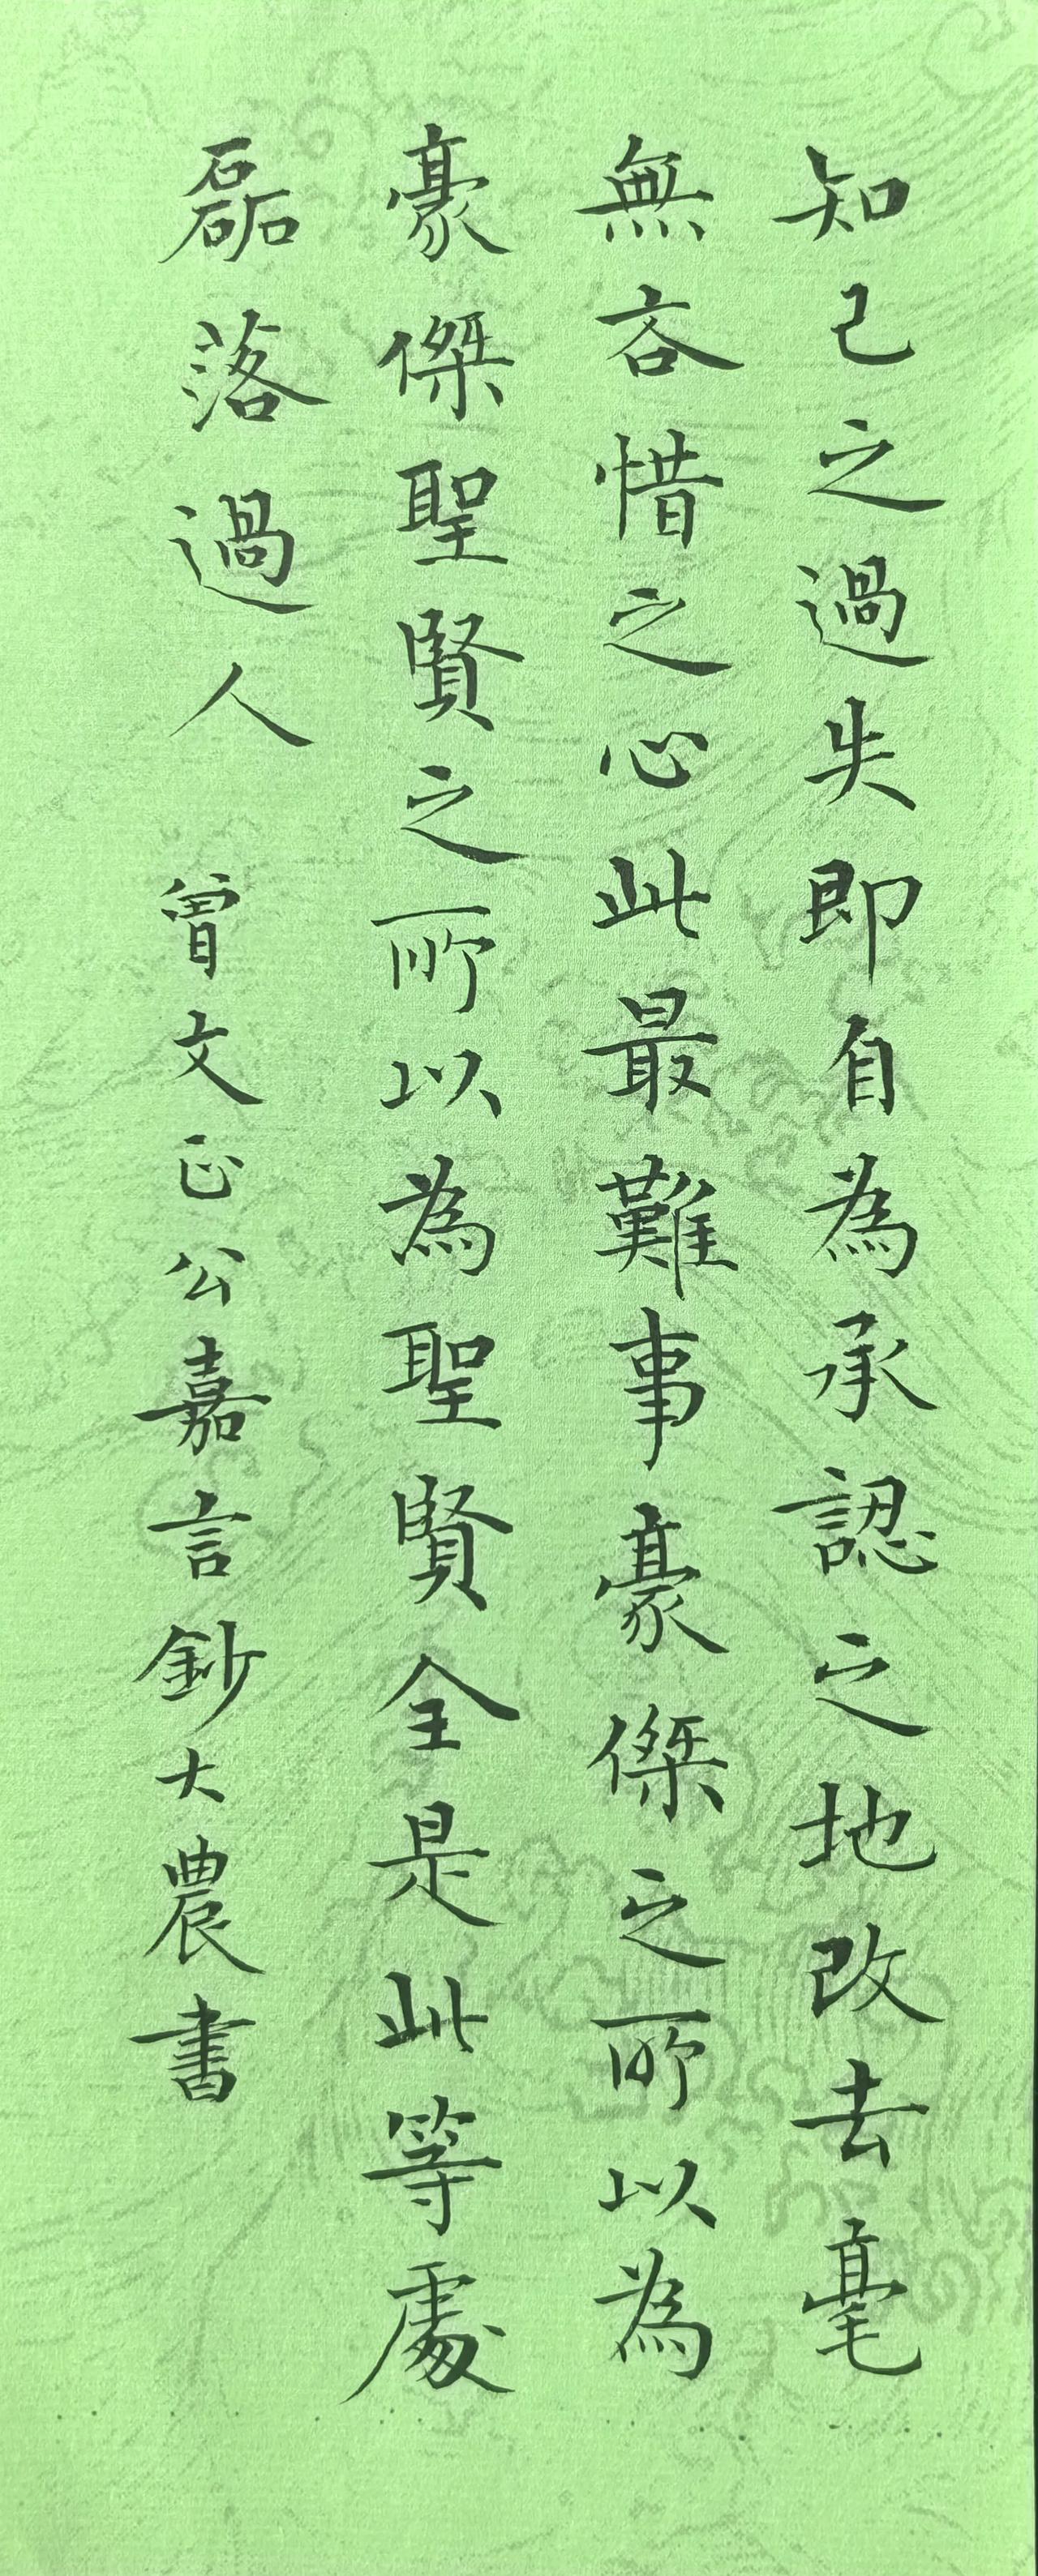 知己之過失即自為承認之地改去毫
無吝惜之心此最難事豪傑之所以為
豪傑聖賢之所以為聖賢全是此等處
磊落過人 曾文正公嘉言鈔大農書